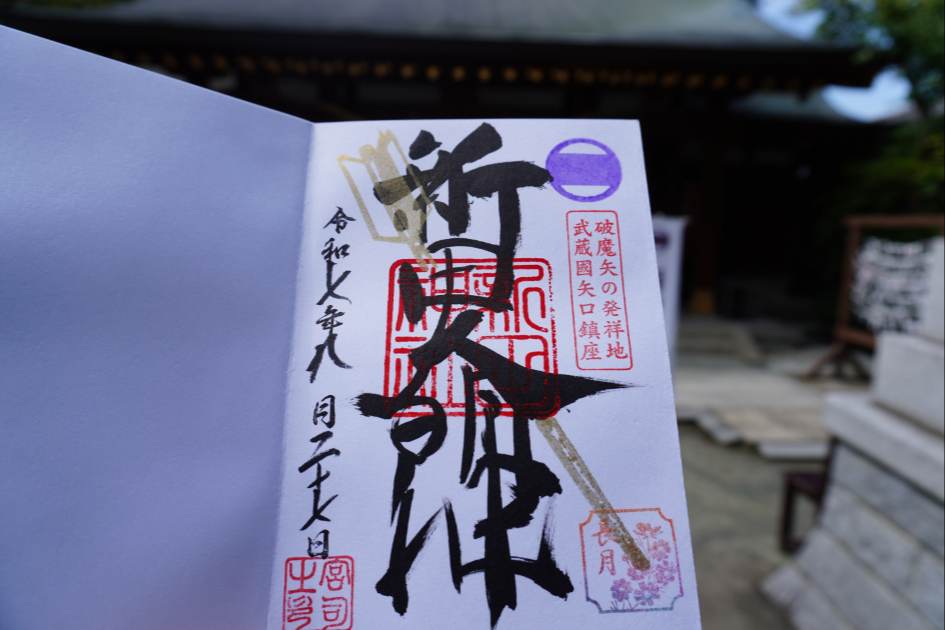 破魔矢の発祥地
武蔵國矢口鎮座
新田大明神
新田
神社
長月
令和七年九月二十七日
宮司
之印